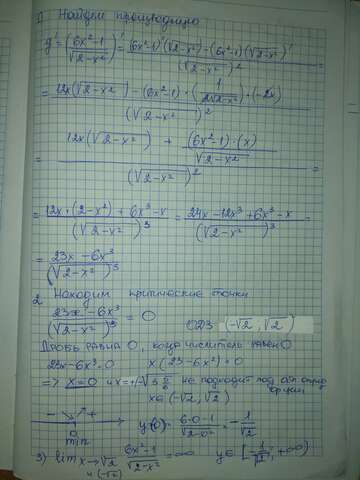 1) Найдем производную
y' = (6x²-1 / √2-x²)' = (6x²-1)'(√2-x²) - (6x²-1)(√2-x²)' / (√2-x²)² =
= 12x(√2-x²) - (6x²-1)·(1 / 2√2-x²)·(-2x) / (√2-x²)² =
= 12x(√2-x²) + (6x²-1)·(x) / √2-x² / (√2-x²)² =
= 12x·(2-x²) + 6x³-x / (√2-x²)³ = 24x-12x³+6x³-x / (√2-x²)³ =
= 23x-6x³ / (√2-x²)³
2. Находим критические точки
23x-6x³ / (√2-x²)³ = 0 ОДЗ (-√2, √2)
ДРОБЬ РАВНА 0, когда числитель равен 0
23x-6x³=0 x(23-6x²)=0
=> x=0 и x=+-√3 5/6 не подходит под обл. опред
x∈(-√2, √2)
- + 0 min y(0)= 6·0-1 / √2-0² = -1/√2
3) lim x→√2 6x²-1 / √2-x² = ∞ y∈[-1/√2; +∞)
и (-√2)